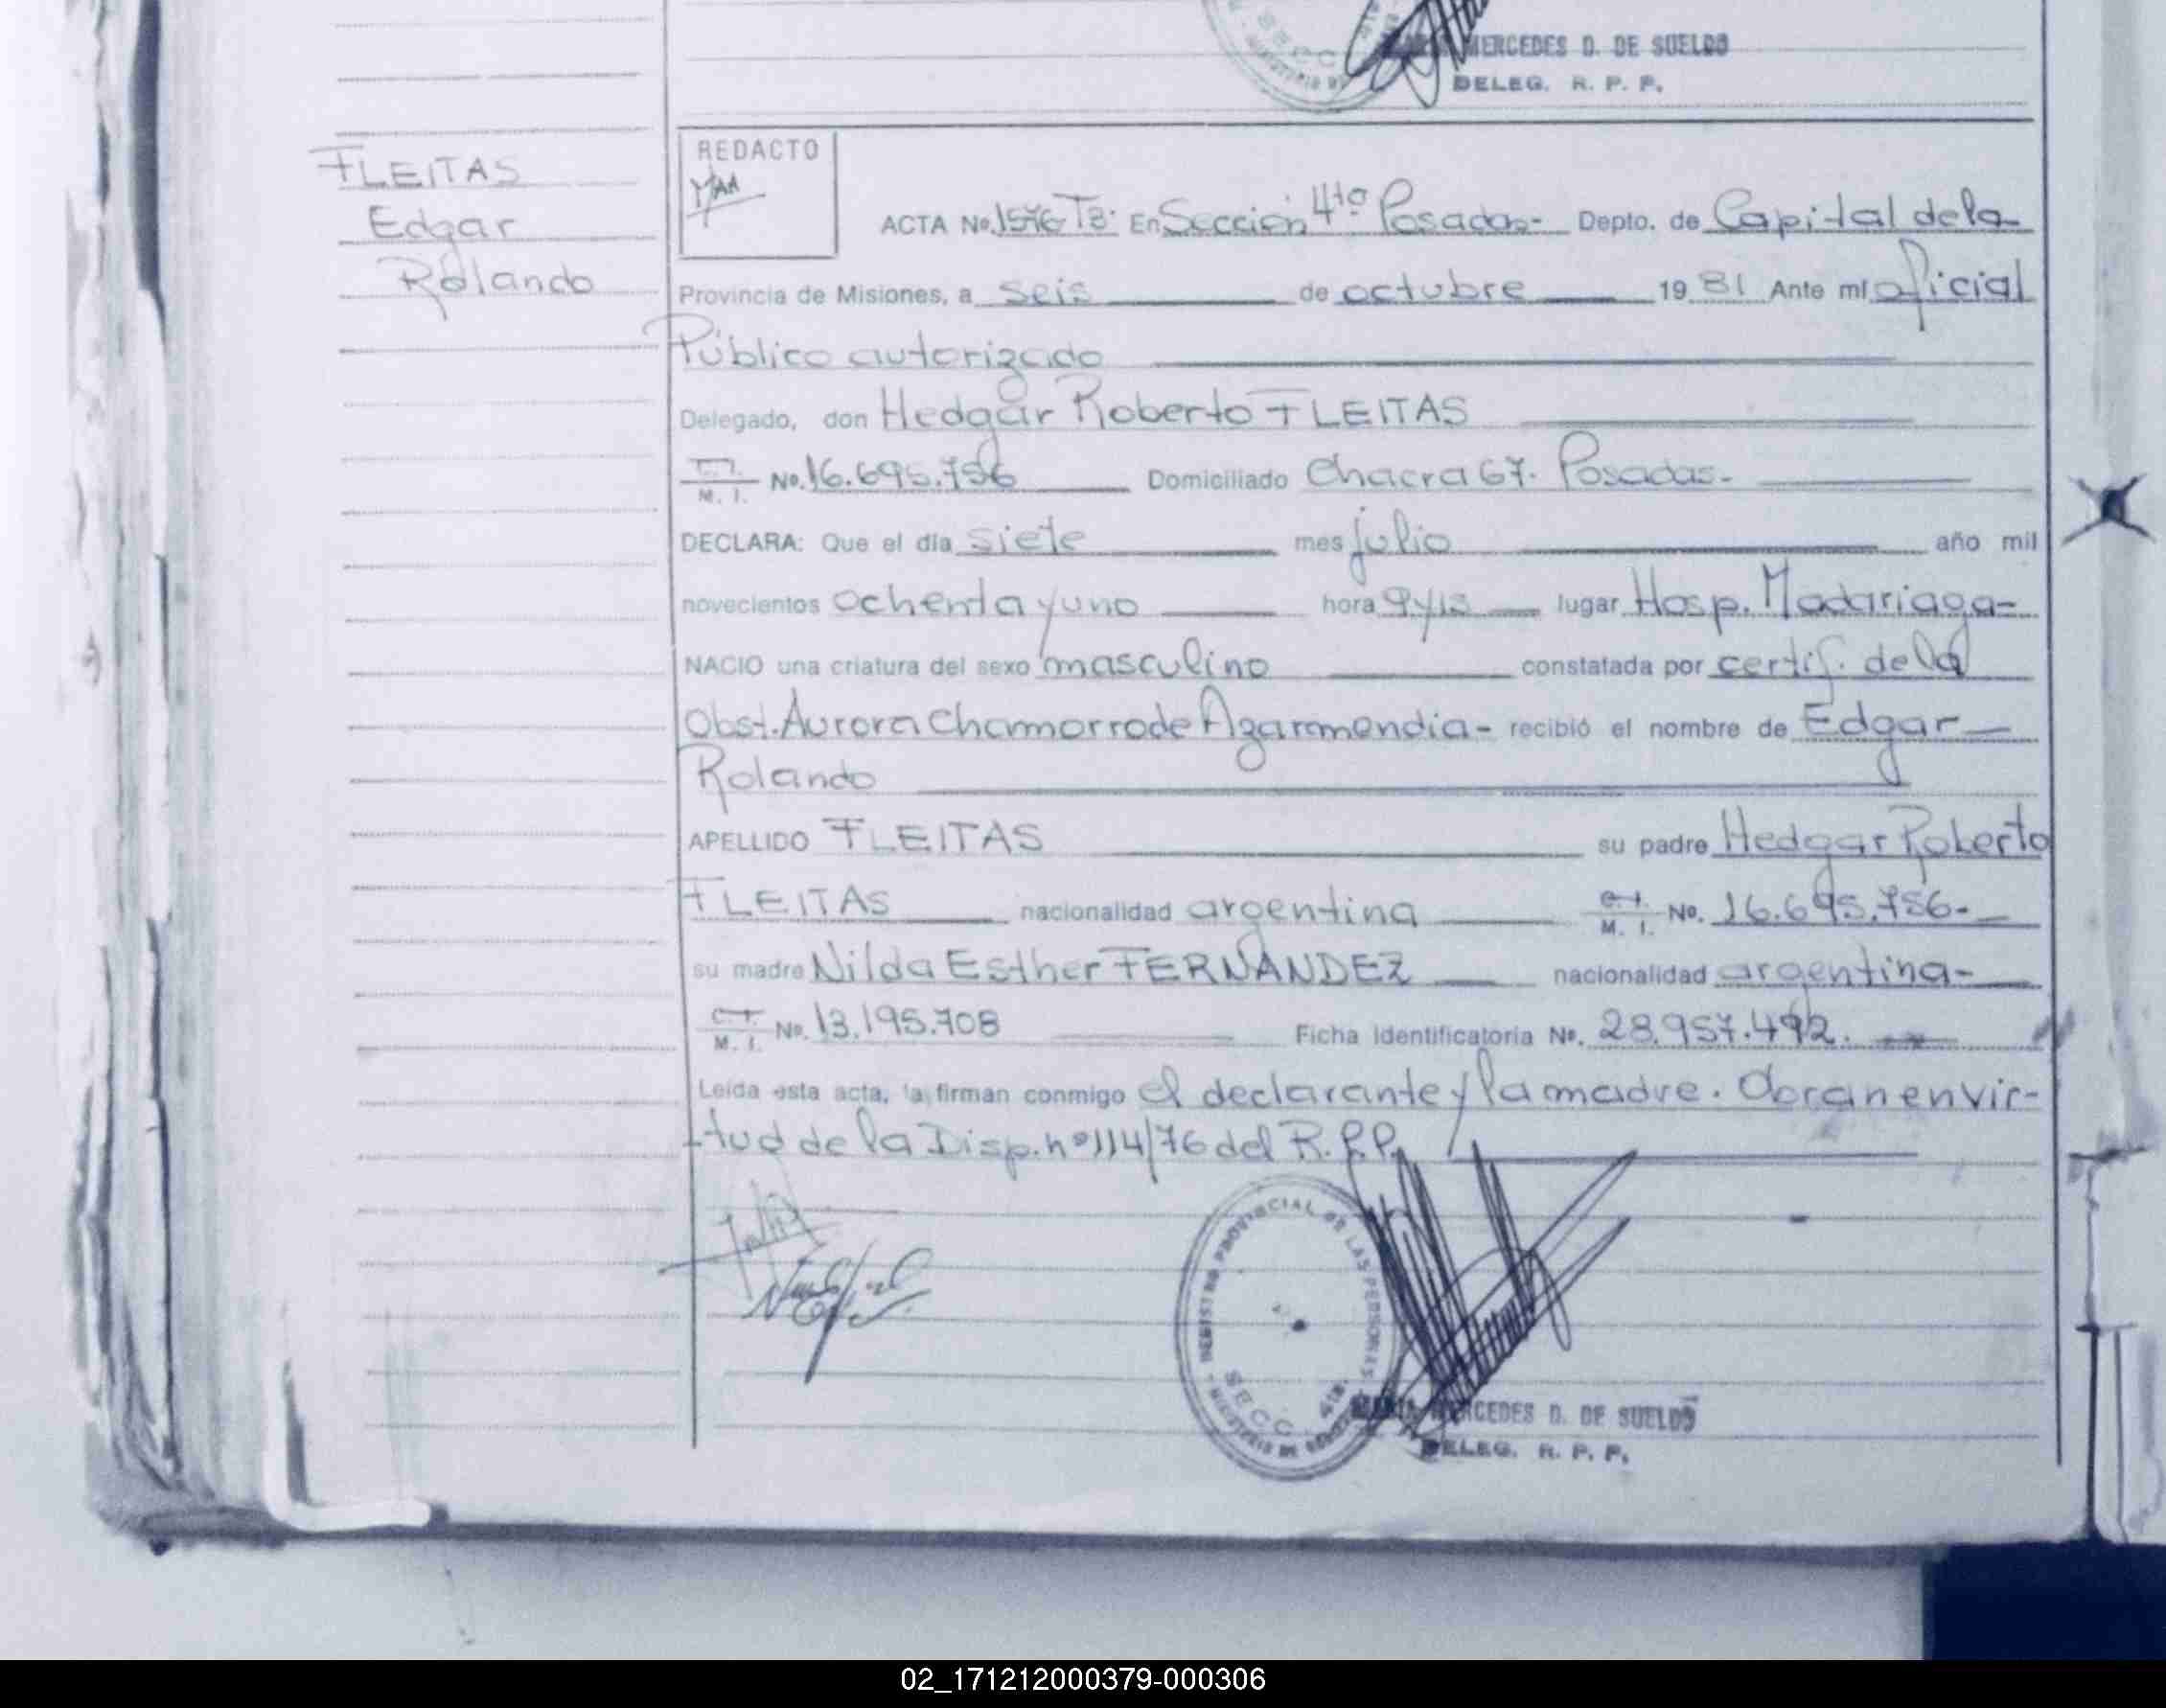 MERCEDES D. DE SUELDO
DELEG. R. P. P.
FLEITAS
Edgar
Rolando
REDACTO
MAA
ACTA No. 1576 T3. En Sección 4ta Posadas- Depto. de Capital de la
Provincia de Misiones, a seis de octubre 19 81 Ante mí oficial
Público autorizado
Delegado, don Hedgar Roberto FLEITAS
M. I. No. 16.695.756 Domiciliado Chacra 67. Posadas.
DECLARA: Que el día siete mes julio año mil
novecientos ochenta y uno hora 9 y 15 lugar Hosp. Madariaga-
NACIO una criatura del sexo masculino constatada por certif. de la
Obst. Aurora Chamorro de Agaramendia- recibió el nombre de Edgar
Rolando
APELLIDO FLEITAS su padre Hedgar Roberto
FLEITAS nacionalidad argentina C. I. M. I. No. 16.695.756-
su madre Nilda Esther FERNANDEZ nacionalidad argentina-
C. I. M. I. No. 13.195.708 Ficha Identificatoria No. 28.957.492.
Leída esta acta, la firman conmigo el declarante y la madre. Obran en vir-
tud de la Disp. nº 114/76 del R.P.P.
REGISTRO PROVINCIAL DE LAS PERSONAS
SECC. 4ta.
MERCEDES D. DE SUELDO
DELEG. R. P. P.
02_171212000379-000306